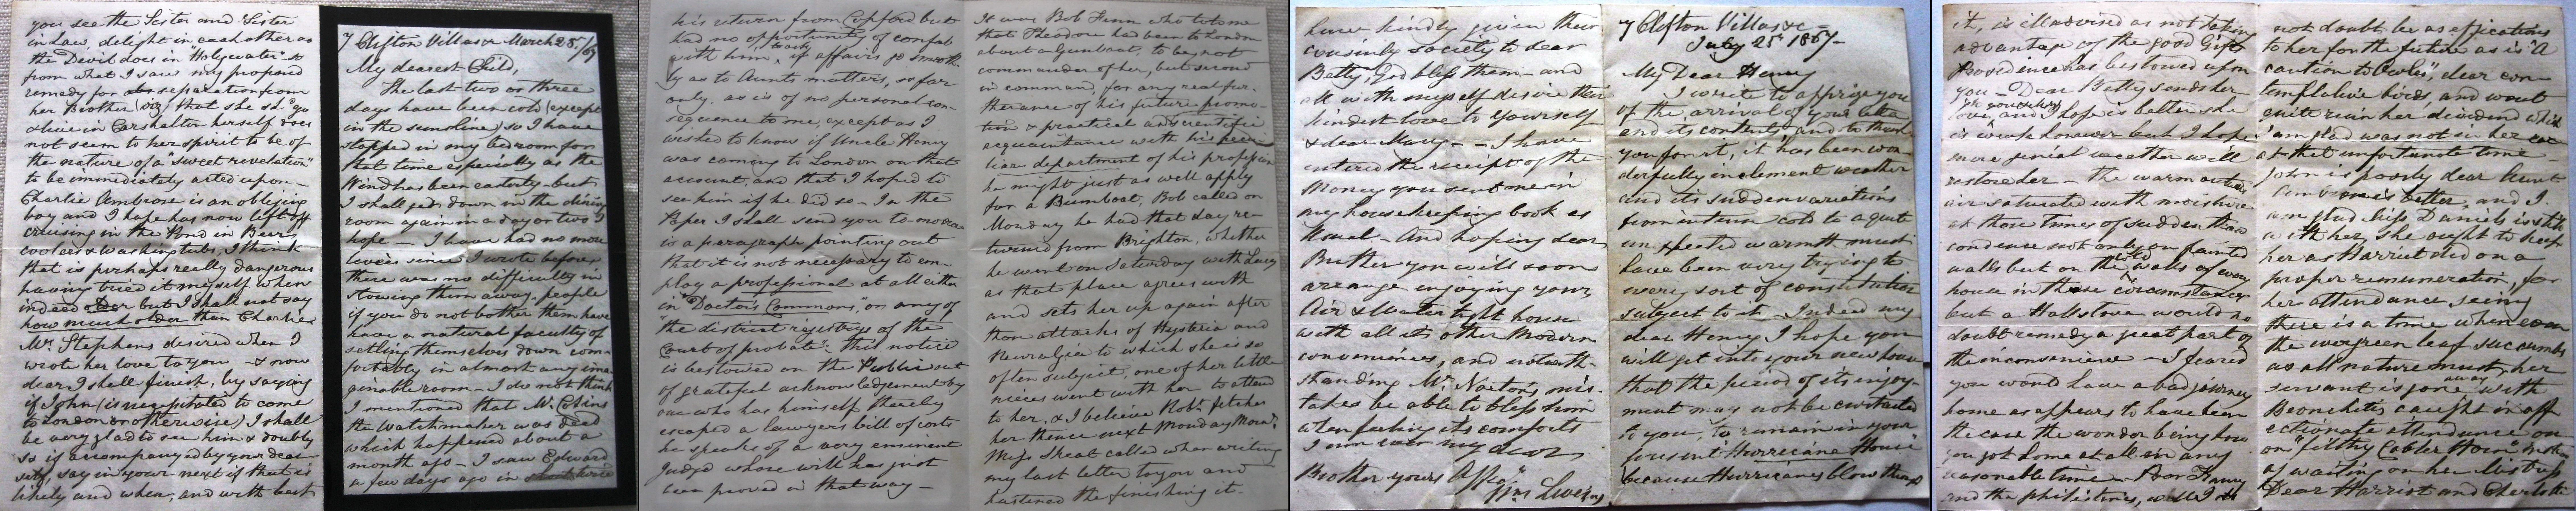 you see the Sister and Sister
in Law, delight in each other as
the Devil does in "Holywater" so
from what I saw my proposed
remedy for separation from
her Brother that she sd "go
& live in Carshalton herself does
not seem to her spirit to be of
the nature of a "sweet revelation"
to be immediately acted upon—
Charlie Ambrose is an obliging
boy and I hope has now left off
cruising in the Pond in Beer
coolers & washing tubs, I think
that is perhaps really dangerous
having tried it myself when
indeed older but I shall not say
how much older than Charlie
Mr. Stephens desired when I
wrote her love to you — & now
dear I shall finish, by saying
if John (is necessitated to come
to London or otherwise) I shall
be very glad to see him & doubly
so if accompanied by your dear
self, say in your next if that is
likely and when, and with best
7 Clifton Villas &c March 28/67
My dearest Child,
The last two or three
days have been cold (except
in the sunshine) so I have
stopped in my bedroom for
that time especially as the
Wind has been easterly — but
I shall get down in the dining
room again in a day or two I
hope — I have had no more
levees since I wrote before
there was no difficulty in
stowing them away, people
if you do not bother them have
have a natural faculty of
settling themselves down com-
fortably in almost any ima-
ginable room — I do not think
I mentioned that Mr.
the Watchmaker was dead
which happened about a
month ago — I saw Edward
a few days ago in
his return from Copford but
had no opportunity of confab
with him, to ask if affairs go smooth-
ly as to Aunts matters, so far
only, as is of no personal con-
sequence to me, except as I
wished to know if Uncle Henry
was coming to London on that
account, and that I hoped to
see him if he did so — In the
Paper I shall send you to-morrow
is a paragraph pointing out
that it is not necessary to em-
ploy a professional at all either
in "Doctors Commons," or any of
"the district registrys of the
Court of probate". This notice
is bestowed on the Public out
of grateful acknowledgement by
one who has himself thereby
escaped a lawyers bill of costs
he speaks of a very eminent
Judge whose will has just
been proved in that way —
It was Bob Fenn who told me
that Theodore had been to London
about a Gunboat, to be, not
commander of her, but second
in command, for any real fur-
therance of his future promo-
tion & practical and scientific
acquaintance with his pecu-
liar department of his profession
he might just as well apply
for a Bumboat, Bob called on
Monday he had that day re-
turned from Brighton, whether
he went on Saturday with Lucy
as that place agrees with
and sets her up again after
those attacks of Hysteria and
Neuralgia to which she is so
often subject, one of her little
nieces went with her to attend
to her, & I believe Robt fetches
her thence next Monday Morng
Miss Skeat called when writing
my last letter to you and
hastened the finishing it.
have kindly given their
cousinly society to dear
Betty, God bless them — and
all with myself desire their
kindest love to Yourself
& dear Mary — I have
entered the receipt of the
Money you sent me in
my housekeeping book as
Usual — And hoping dear
Brother you will soon
arrange enjoying your
Air & Water tight house
with all its other Modern
conveniences, and notwith-
standing Mr. Norton's mis-
takes be able to bless him
when feeling its comforts
I am ever my dear
Brother yours Affec
Wm Liveing
7 Clifton Villas &c—
July 25th 1867—
My Dear Henry
I write to apprize you
of the arrival of your letter
and its contents, and to thank
you for it, it has been won-
derfully inclement weather
and its sudden variations
from intense cold to a quite
unexpected warmth must
have been very trying to
every sort of constitution
subject to it — Indeed my
dear Henry I hope you
will get into your new house
that the period of its enjoy-
ment may not be curtailed
to you, to remain in your
present Hurricane House
because Hurricanes blow things
it, is ill advised as not taking
advantage of the good Gifts
Providence has bestowed upon
you — Dear Betty sends her
love, and I hope is better she
is weak however but I hope
more genial weather will
restore her — The warm outside
air saturated with moisture
at those times of sudden thaw
condences not only on painted
walls but on the cold walls of every
house in those circumstances
but a Hall stove would no
doubt remedy a great part of
the inconvenience — I feared
you would have a bad journey
home as appears to have been
the case the wonder being how
you got home at all in any
reasonable time — Poor Fanny
and the philistines, will I do
not doubt be as efficatious
to her for the future as is "A
caution to Owls", dear con-
templative birds, and wont
quite ruin her dividend which
I am glad was not in her
at that unfortunate time —
John is poorly dear Aunt
Ambrose is better, and I
am glad Miss Daniels is still
with her, she ought to keep
her as Harriet did on a
proper remuneration, for
her attendance, seeing
there is a time when even
the evergreen leaf succumbs
as all nature must, her
servant is gone away with
Bronchitis caught in aff-
ectionate attendance on
on "filthy Cobler Horn" instead
of waiting on her Mistress
Dear Harriot and Charlotte